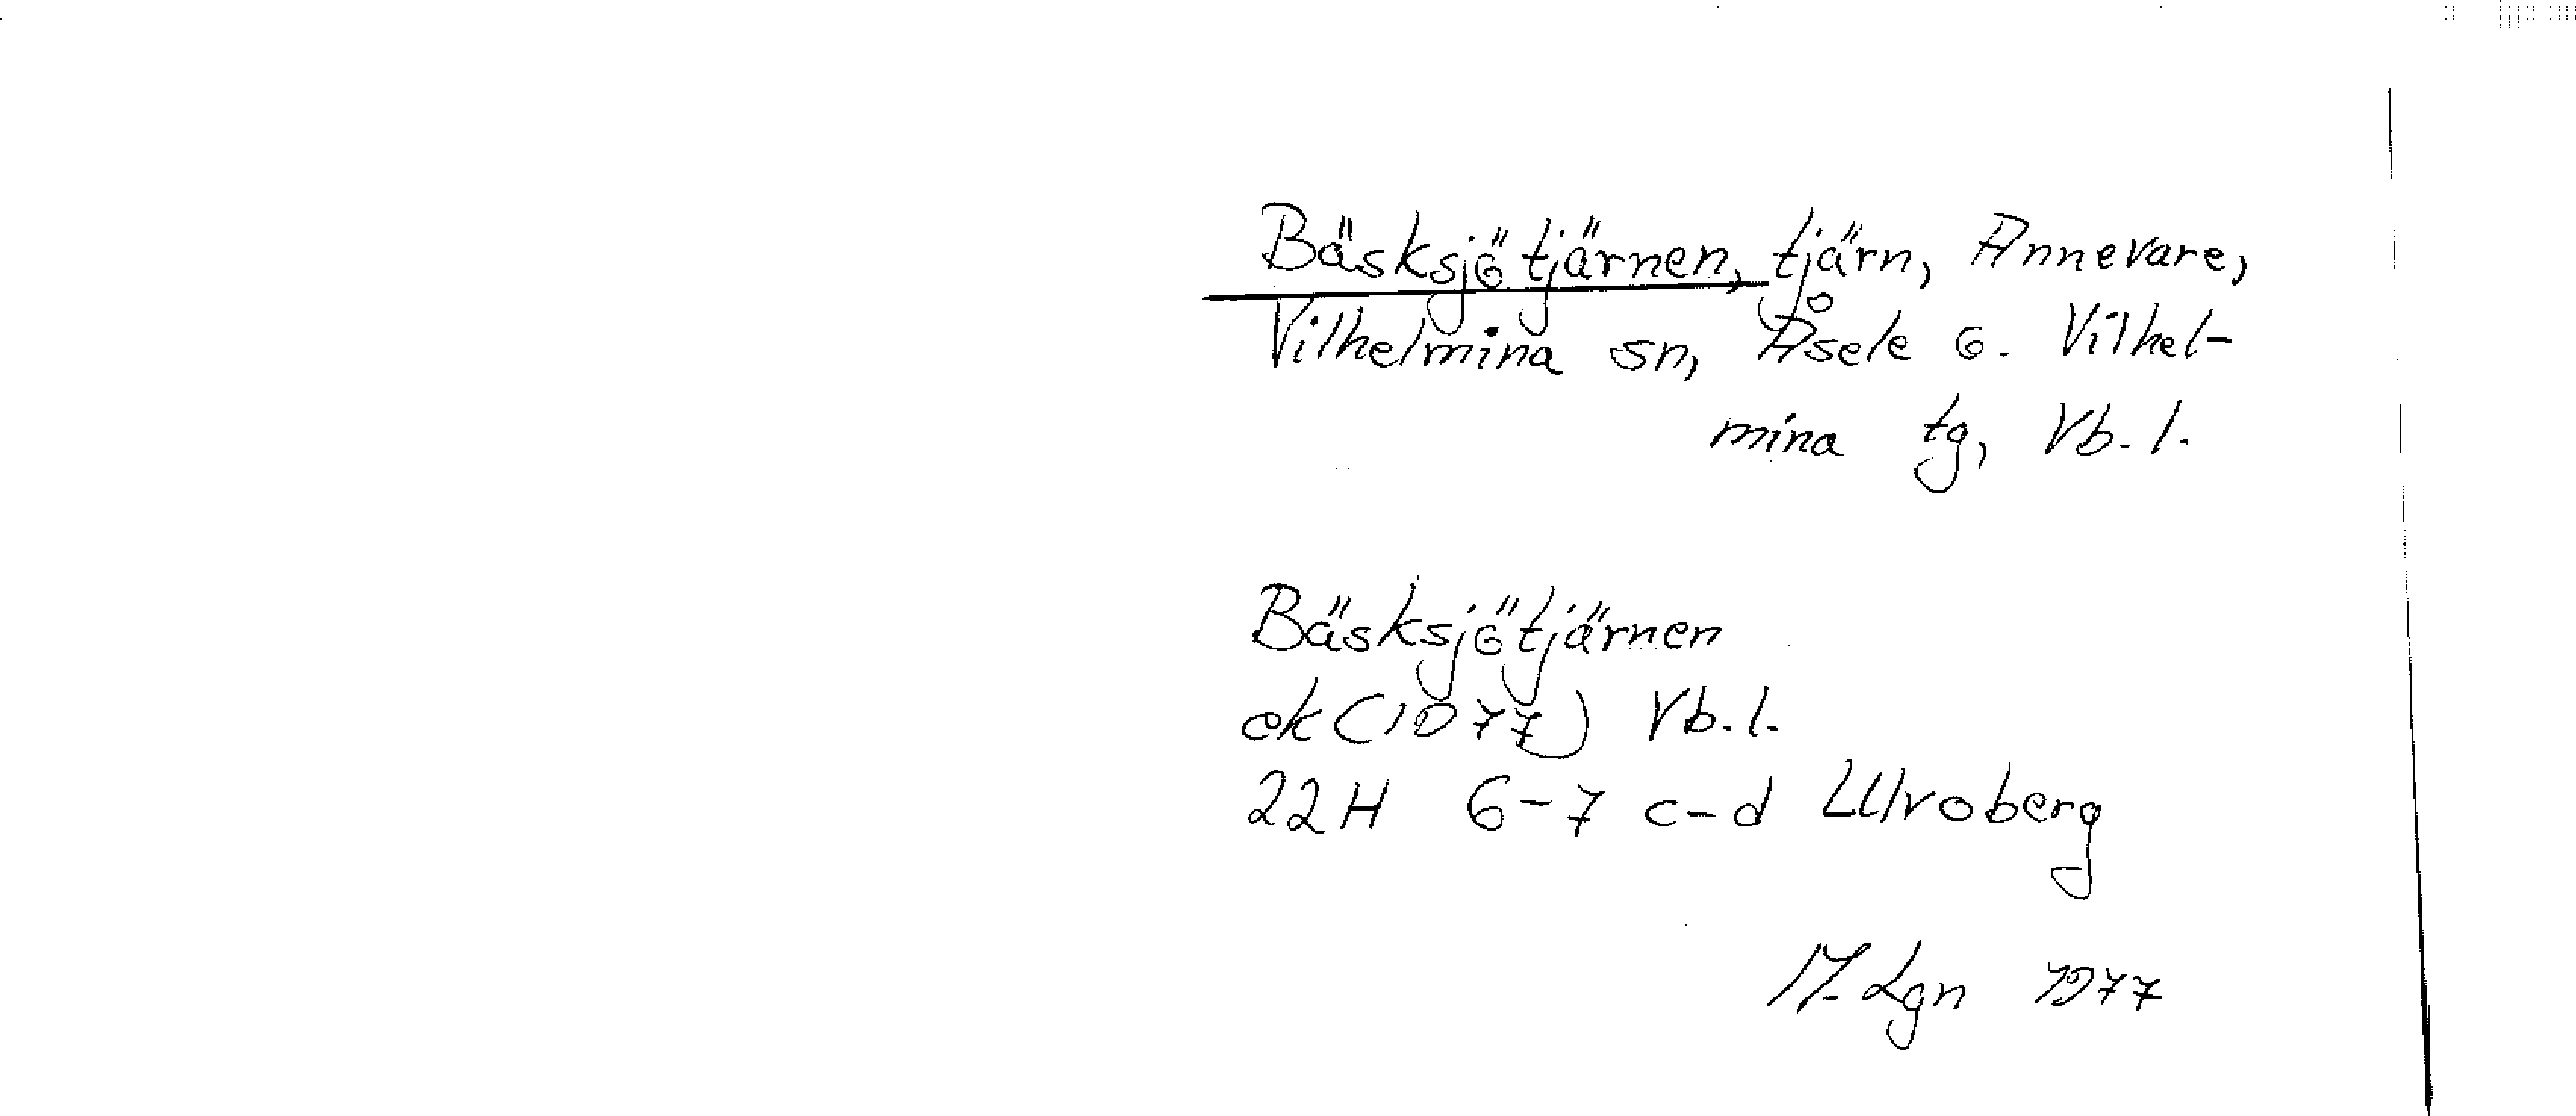 Bäsksjötjärnen, tjärn, Annevare,
Vilhelmina sn, Åsele o. Vilhel-
mina tg, Vb. l.
Bäsksjötjärnen
ek (1977) Vb. l.
22H 6-7 c-d Ulvoberg
M. Lgn 1977